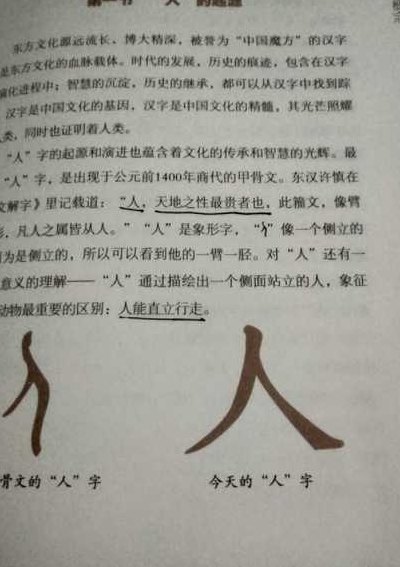 第一节 “人”的起源
东方文化源远流长、博大精深，被誉为“中国魔方”的汉字
是东方文化的血脉载体。时代的发展，历史的痕迹，包含在汉字
演化进程中；智慧的沉淀，历史的继承，都可以从汉字中找到踪
汉字是中国文化的基因，汉字是中国文化的精髓，其光芒照耀
人类，同时也证明着人类。
“人”字的起源和演进也蕴含着文化的传承和智慧的光辉。最
“人”字，是出现于公元前1400年商代的甲骨文。东汉许慎在
文解字》里记载道：“人，天地之性最贵者也，此籀文，像臂
形，凡人之属皆从人。”“人”是象形字，“ ”像一个侧立的
因为是侧立的，所以可以看到他的一臂一胫。对“人”还有一
意义的理解——“人”通过描绘出一个侧面站立的人，象征
动物最重要的区别：人能直立行走。
人
骨文的“人”字
今天的“人”字